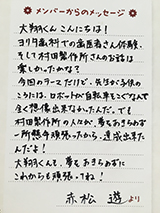 メンバーからのメッセージ
大翔くんこんにちは!
ヨリタ歯科での歯医者さん体験、
そして村田製作所さんのお話は
楽しかったかな?
今回のテーマだけど、先生が子供の
ころには、ロボットが自転車をこぐなんて
全く想像出来なかったんだ。でも
村田製作所の人達が、夢をあきらめず
一所懸命頑張ったから、達成出来た
んだよ!
大翔くんも、夢をあきらめずに
これからも頑張ってね!
赤松 遊より